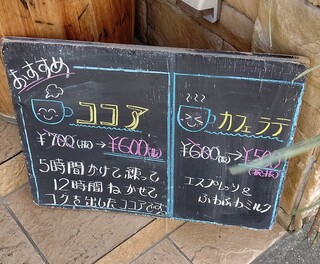 おすすめ
ココア
¥700(税)→¥600(税)
5時間かけて練って
12時間ねかせて
コクを出したココアです
カフェラテ
¥600(税)→¥500
エスプレッソと
ふわふわミルク